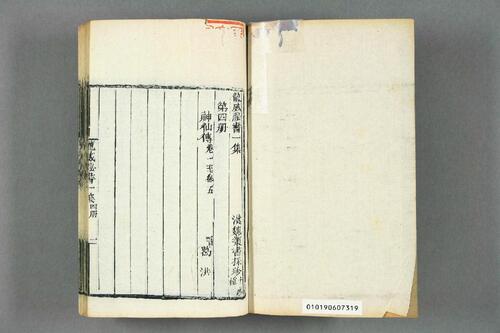 龍威秘書一集
漢魏叢書採珍
第四册
神仙傳卷一至卷五
晉葛洪
龍威秘書一集四册
一
010190607319